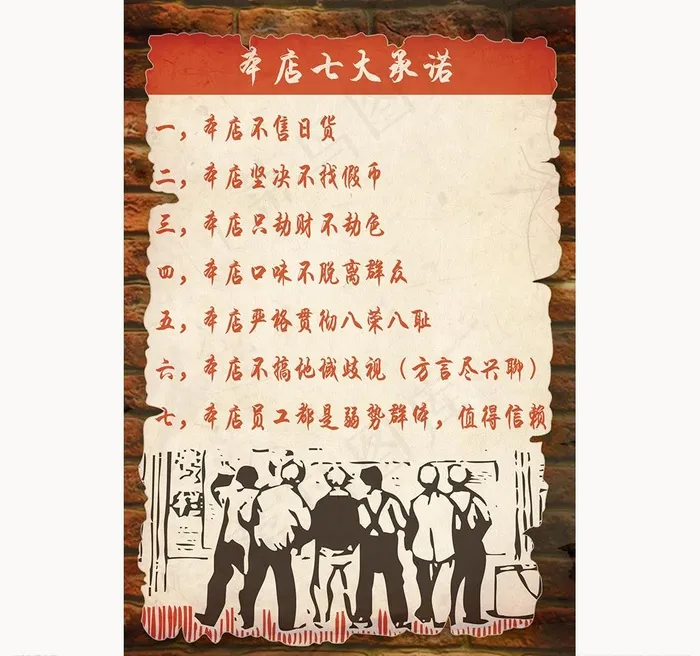 本店七大承诺
一，本店不售日货
二，本店坚决不找假币
三，本店只劫财不劫色
四，本店口味不脱离群众
五，本店严格贯彻八荣八耻
六，本店不搞地域歧视（方言尽兴聊）
七，本店员工都是弱势群体，值得信赖